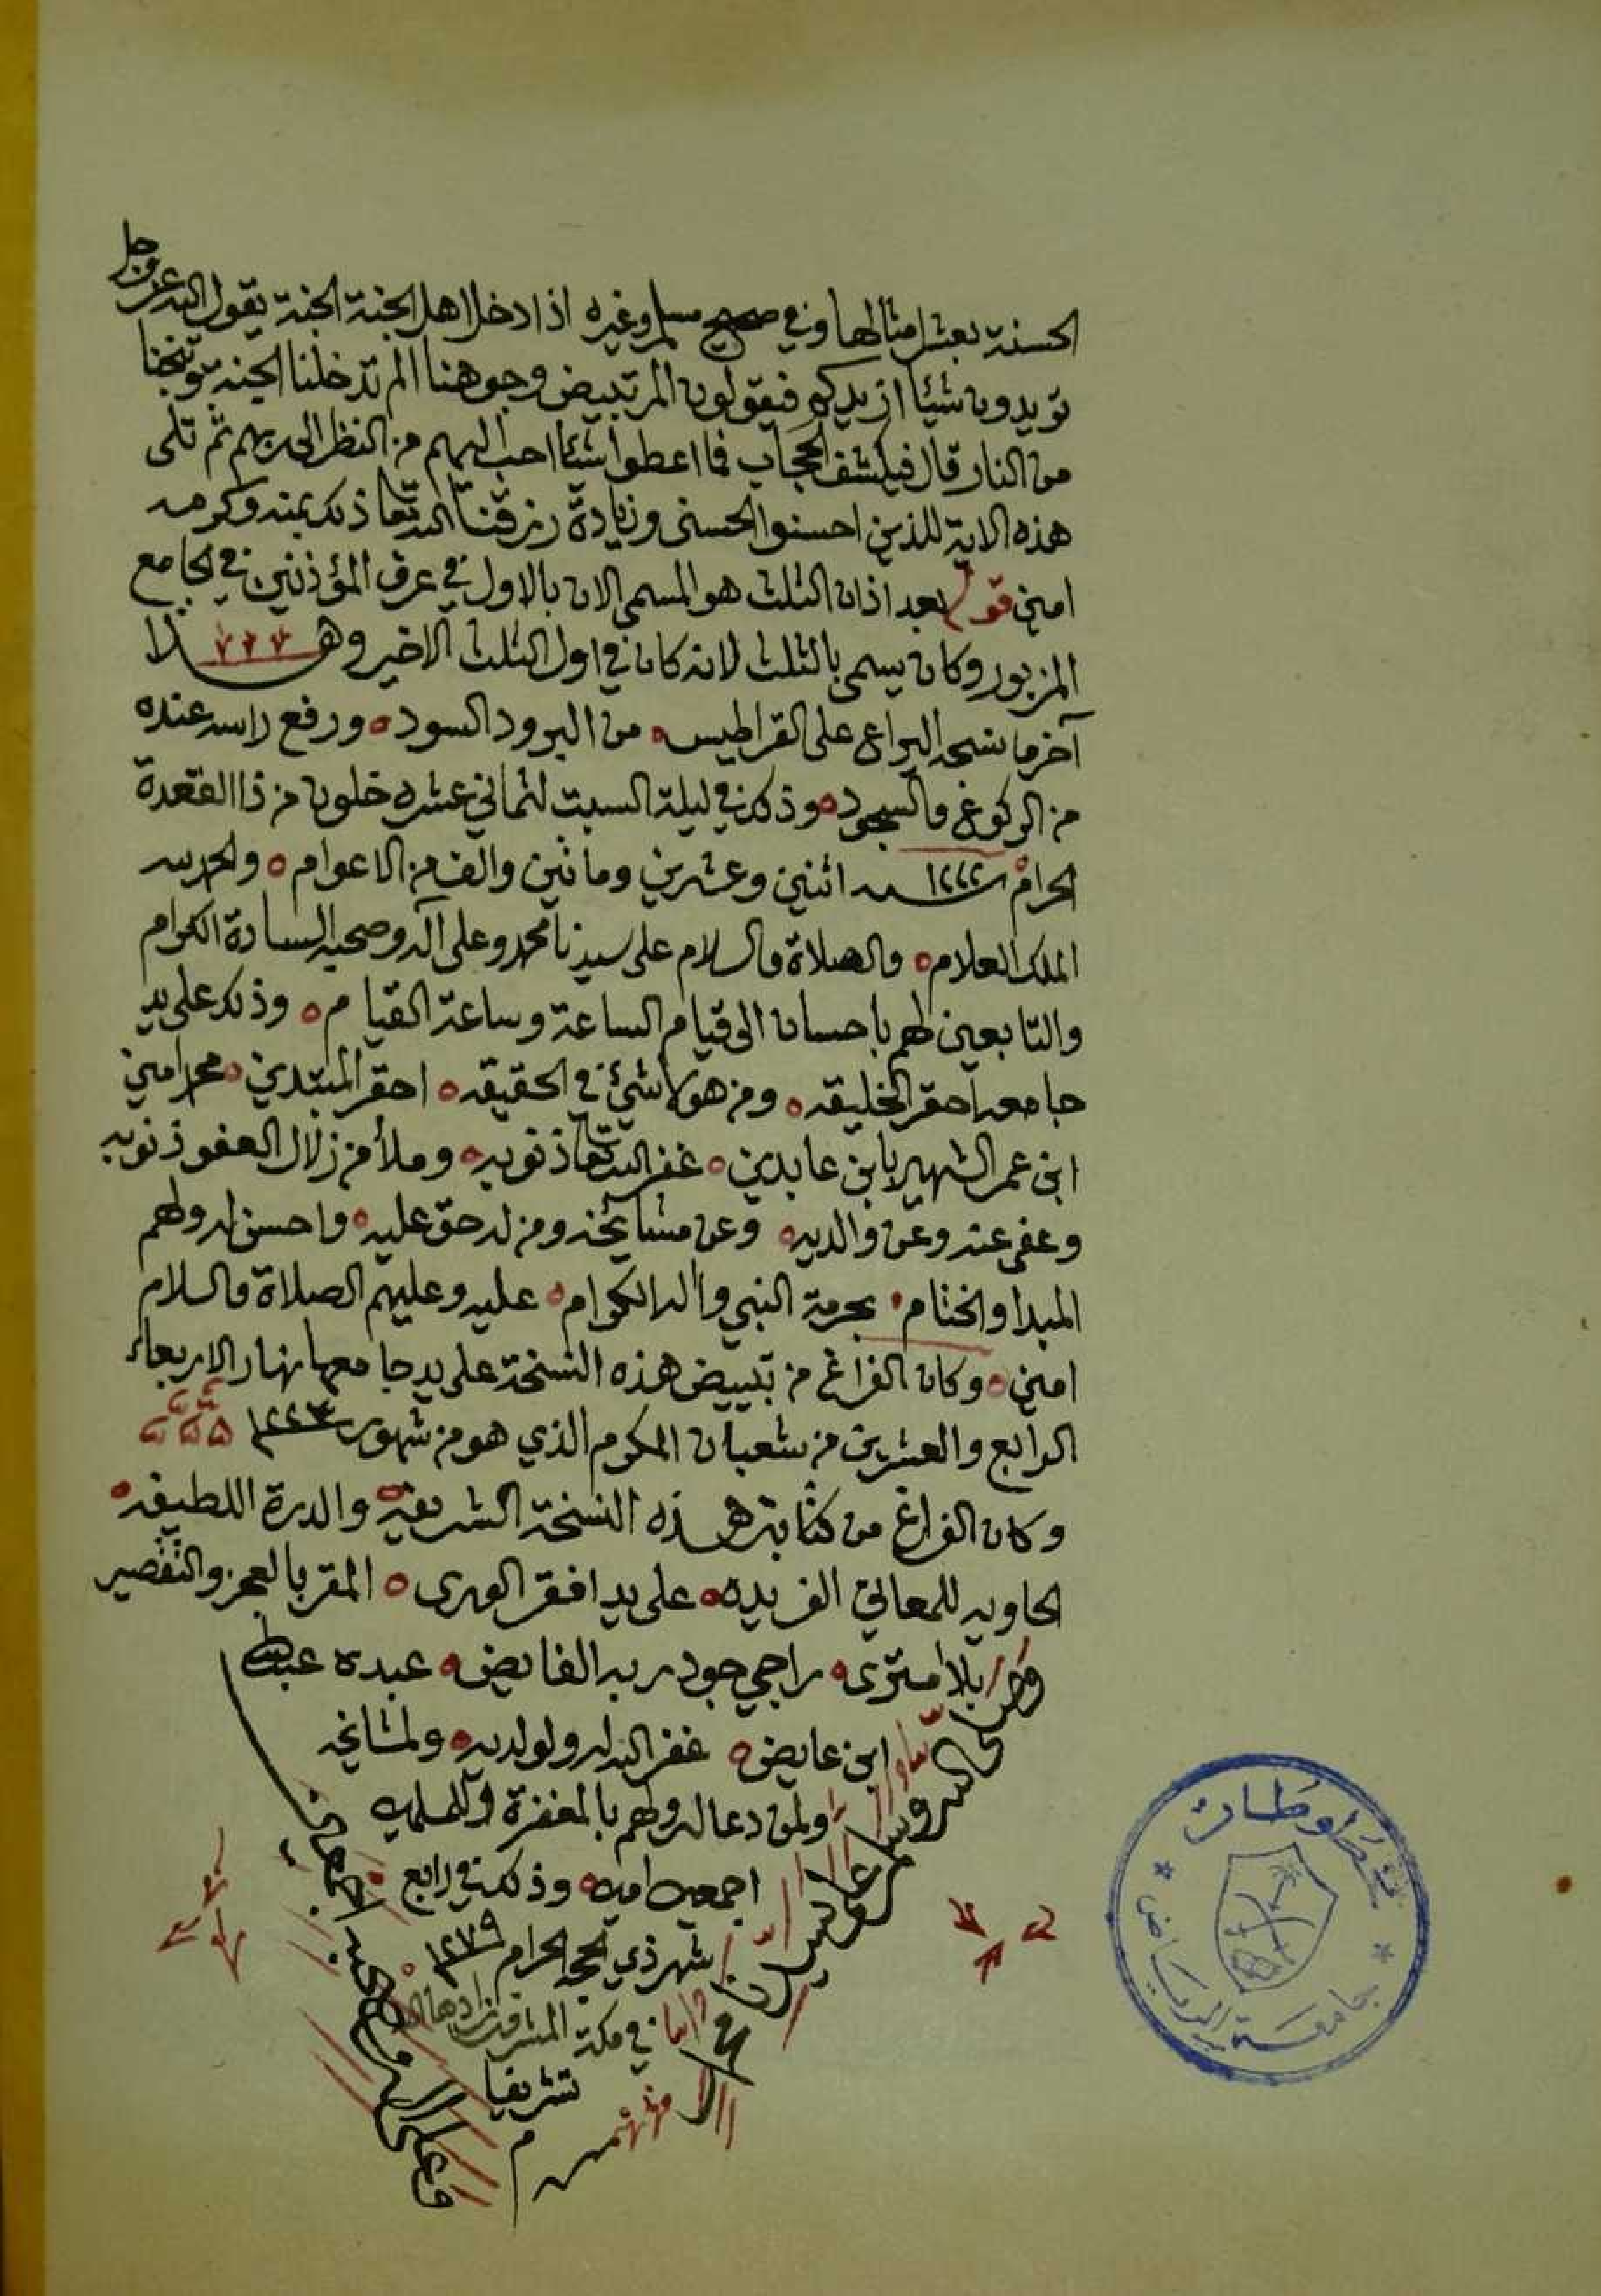 الحسنة بعشر امثالها وفي صحيح مسلم وغيره اذا دخل اهل الجنة الجنة يقول الله عز وجل
تريدون شيئا ازيدكم فيقولون الم تبيض وجوهنا الم تدخلنا الجنة وتنجنا
من النار قال فيكشف الحجاب فما اعطوا شيئا احب اليهم من النظر الى ربهم ثم تلى
هذه الاية للذين احسنوا الحسنى وزيادة رزقنا الله تعا ذلك بمنه وكرمه
امين قوله بعد اذان الثلث هو المسمى الان بالاول في عرف المؤذنين في الجامع
المزبور وكان يسمى بالثلث لانه كان في اول الثلث الاخير وهذا
آخر ما نسجه اليراع على القراطيس من البرود السود ورفع راسه عنده
من الركوع والسجود وذلك في ليلة السبت لثماني عشره خلون من ذا القعدة
الحرام سنه ١٢٢٢ اثنين وعشرين ومائتين والف من الاعوام والحمد لله
الملك العلام والصلاة والسلام على سيدنا محمد وعلى آله وصحبه السادة الكرام
والتابعين لهم باحسان الى قيام الساعة وساعة القيام وذلك على يد
جامعه احقر الخليقه ومن هو لا شيئ في الحقيقه احقر المبتدين محمد امين
ابن عمر الشهير بابن عابدين غفر الله تعا ذنوبه وملأ من زلال العفو ذنوبه
وعفى عنه وعن والديه وعن مشايخه ومن له حق عليه واحسن له ولهم
المبدا والختام بحرمة النبي واله الكرام عليه وعليهم الصلاة والسلام
امين وكان الفراغ من تبييض هذه النسخة على يد جامعها نهار الاربعاء
الرابع والعشرين من شعبان المكرم الذي هو من شهور ١٢٢٣
وكان الفراغ من كتابة هذه النسخة الشريفة والدرة اللطيفه
الحاويه للمعاني الفريده على يد افقر الورى المقر بالعجز والتقصير
بلا امترى راجي جود ربه الفايض عبده
ابن عايض غفر الله له ولوالديه ولمشايخه
ولمن دعا له ولهم بالمغفرة وللمسلمين
اجمعين امين وذلك في رابع
شهر ذي الحجه الحرام ١٢٧٩
في مكة المشرفة زادها الله
تشريفا
م
جامعة الرياض